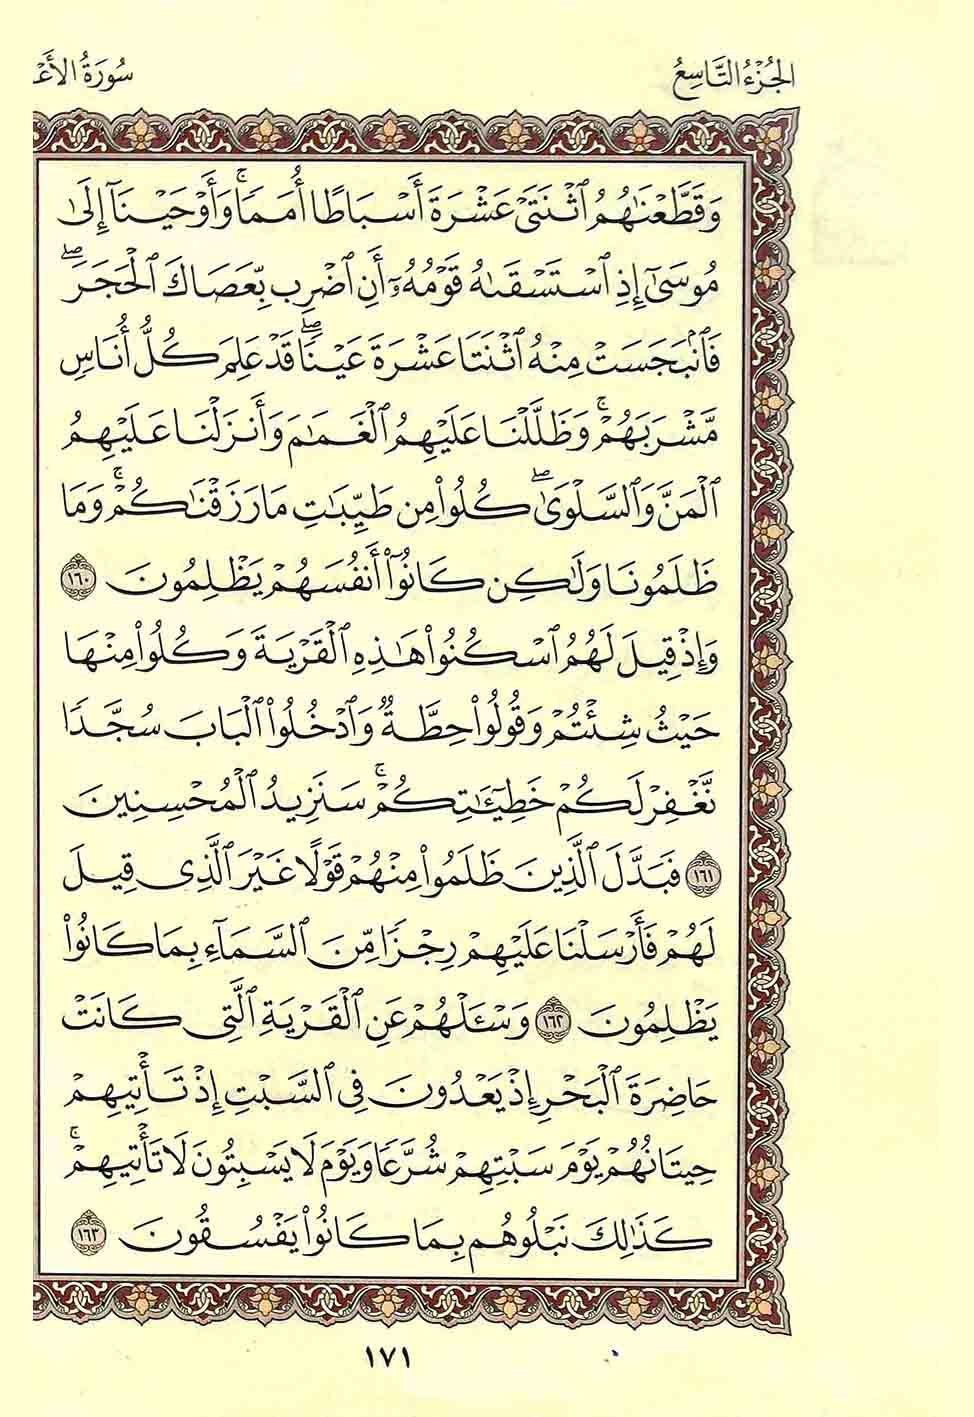 الجُزْءُ التَّاسِعُ
سُورَةُ الأَعْ
وَقَطَّعْنَٰهُمُ ٱثْنَتَىْ عَشْرَةَ أَسْبَاطًا أُمَمًا ۚ وَأَوْحَيْنَآ إِلَىٰ
مُوسَىٰٓ إِذِ ٱسْتَسْقَىٰهُ قَوْمُهُۥٓ أَنِ ٱضْرِب بِّعَصَاكَ ٱلْحَجَرَ ۖ
فَٱنۢبَجَسَتْ مِنْهُ ٱثْنَتَا عَشْرَةَ عَيْنًا ۖ قَدْ عَلِمَ كُلُّ أُنَاسٍ
مَّشْرَبَهُمْ ۚ وَظَلَّلْنَا عَلَيْهِمُ ٱلْغَمَٰمَ وَأَنزَلْنَا عَلَيْهِمُ
ٱلْمَنَّ وَٱلسَّلْوَىٰ ۖ كُلُوا۟ مِن طَيِّبَٰتِ مَا رَزَقْنَٰكُمْ ۚ وَمَا
ظَلَمُونَا وَلَٰكِن كَانُوٓا۟ أَنفُسَهُمْ يَظْلِمُونَ ١٦٠
وَإِذْ قِيلَ لَهُمُ ٱسْكُنُوا۟ هَٰذِهِ ٱلْقَرْيَةَ وَكُلُوا۟ مِنْهَا
حَيْثُ شِئْتُمْ وَقُولُوا۟ حِطَّةٌ وَٱدْخُلُوا۟ ٱلْبَابَ سُجَّدًا
نَّغْفِرْ لَكُمْ خَطِيٓـَٰٔتِكُمْ ۚ سَنَزِيدُ ٱلْمُحْسِنِينَ
١٦١ فَبَدَّلَ ٱلَّذِينَ ظَلَمُوا۟ مِنْهُمْ قَوْلًا غَيْرَ ٱلَّذِى قِيلَ
لَهُمْ فَأَرْسَلْنَا عَلَيْهِمْ رِجْزًا مِّنَ ٱلسَّمَآءِ بِمَا كَانُوا۟
يَظْلِمُونَ ١٦٢ وَسْـَٔلْهُمْ عَنِ ٱلْقَرْيَةِ ٱلَّتِى كَانَتْ
حَاضِرَةَ ٱلْبَحْرِ إِذْ يَعْدُونَ فِى ٱلسَّبْتِ إِذْ تَأْتِيهِمْ
حِيتَانُهُمْ يَوْمَ سَبْتِهِمْ شُرَّعًا وَيَوْمَ لَا يَسْبِتُونَ لَا تَأْتِيهِمْ ۚ
كَذَٰلِكَ نَبْلُوهُم بِمَا كَانُوا۟ يَفْسُقُونَ ١٦٣
١٧١